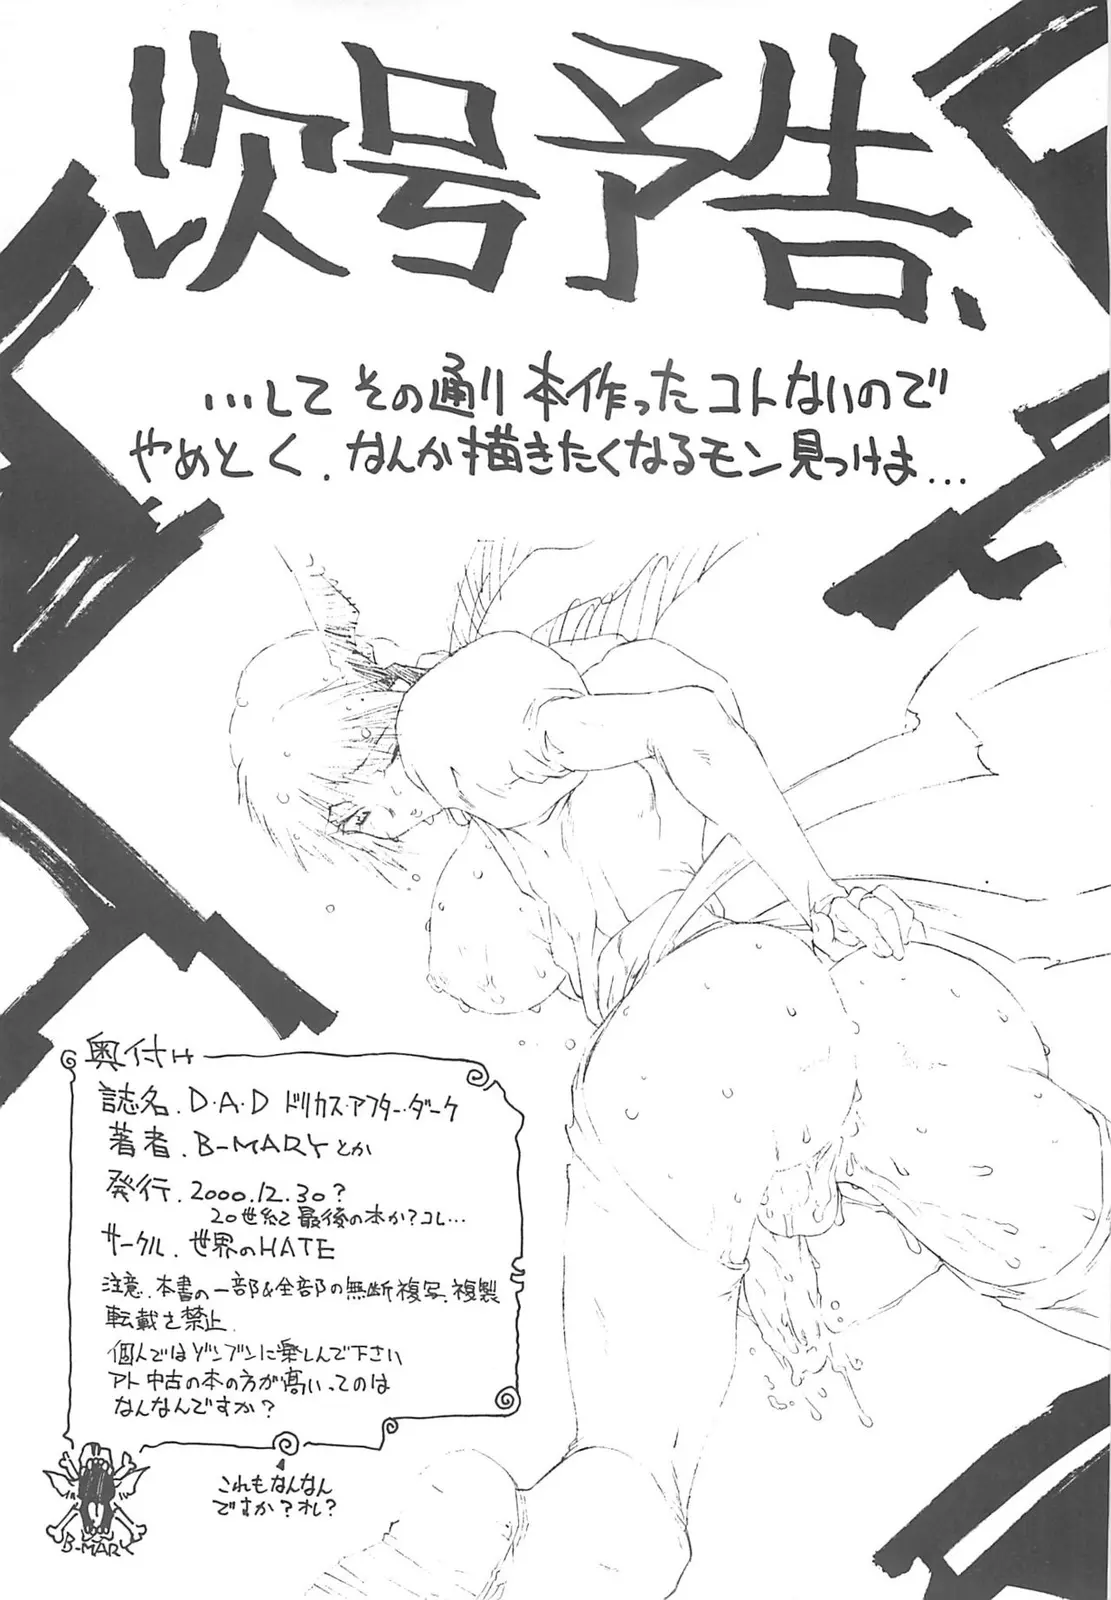 次号予告、
…して その通り 本作ったコトないので
やめとく、なんか描きたくなるモン見っけま…
奥付け
誌名、D・A・D ドリカス・アフター・ダーク
著者、B-MARYとか
発行、2000.12.30?
20世紀最後の本か?コレ…
サークル、世界のHATE
注意、本書の一部&全部の無断複写、複製
転載を禁止
個人ではゾンブンに楽しんで下さい
アト 中古の本の方が高いってのは
なんなんですか?
これもなんなん
ですか?オレ?
B-MARY